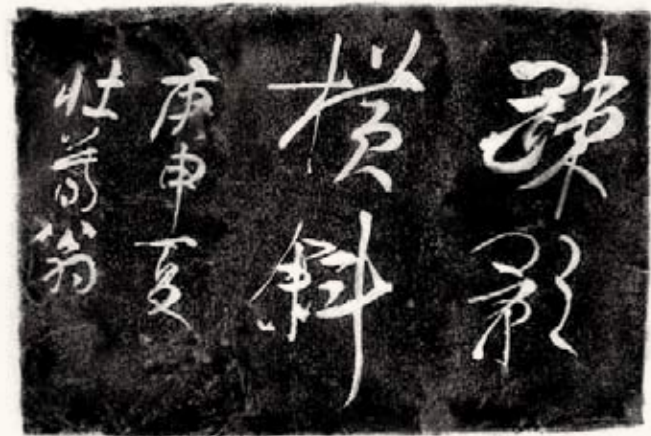 疎影
横斜
庚申夏
壮暮翁